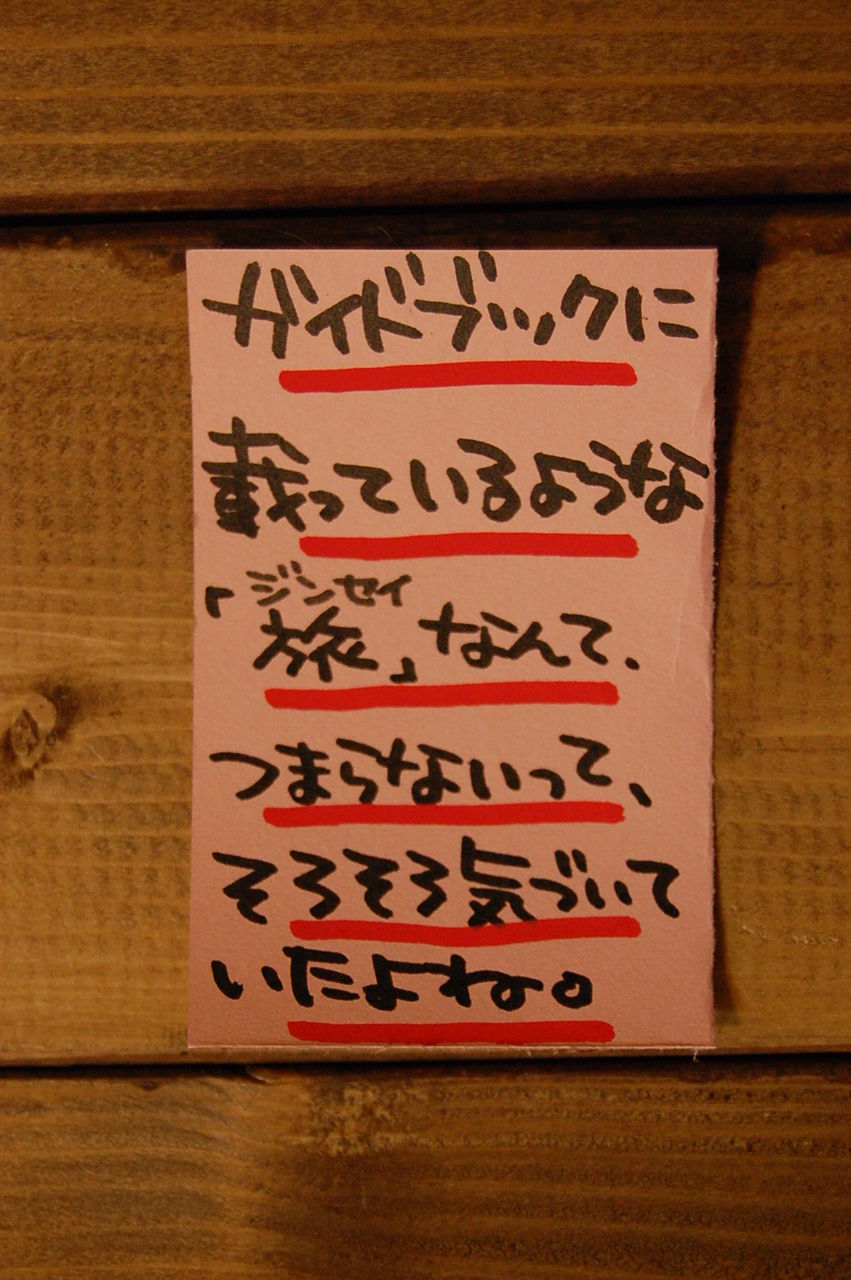 ガイドブックに
載っているような
ジンセイ
「旅」なんて、
つまらないって、
そろそろ気づいて
いたよね。